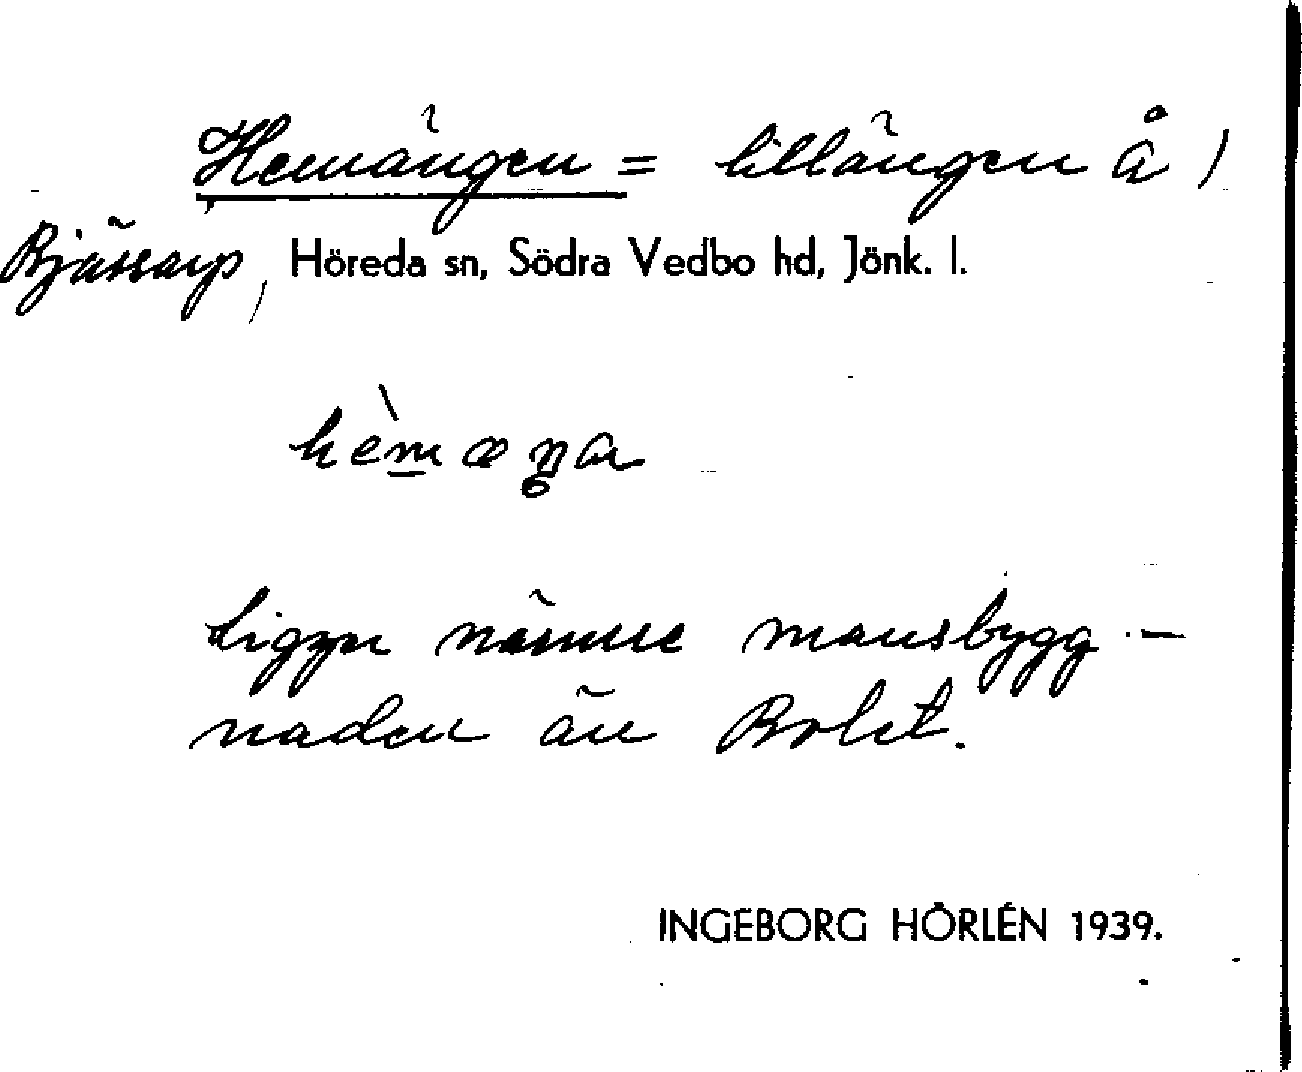 Hemängen = lillängen å /
Bjässarp, Höreda sn, Södra Vedbo hd, Jönk. l.
hèmæŋa
Ligger närmre mansbygg-
naden än Bolet.
INGEBORG HÖRLÉN 1939.